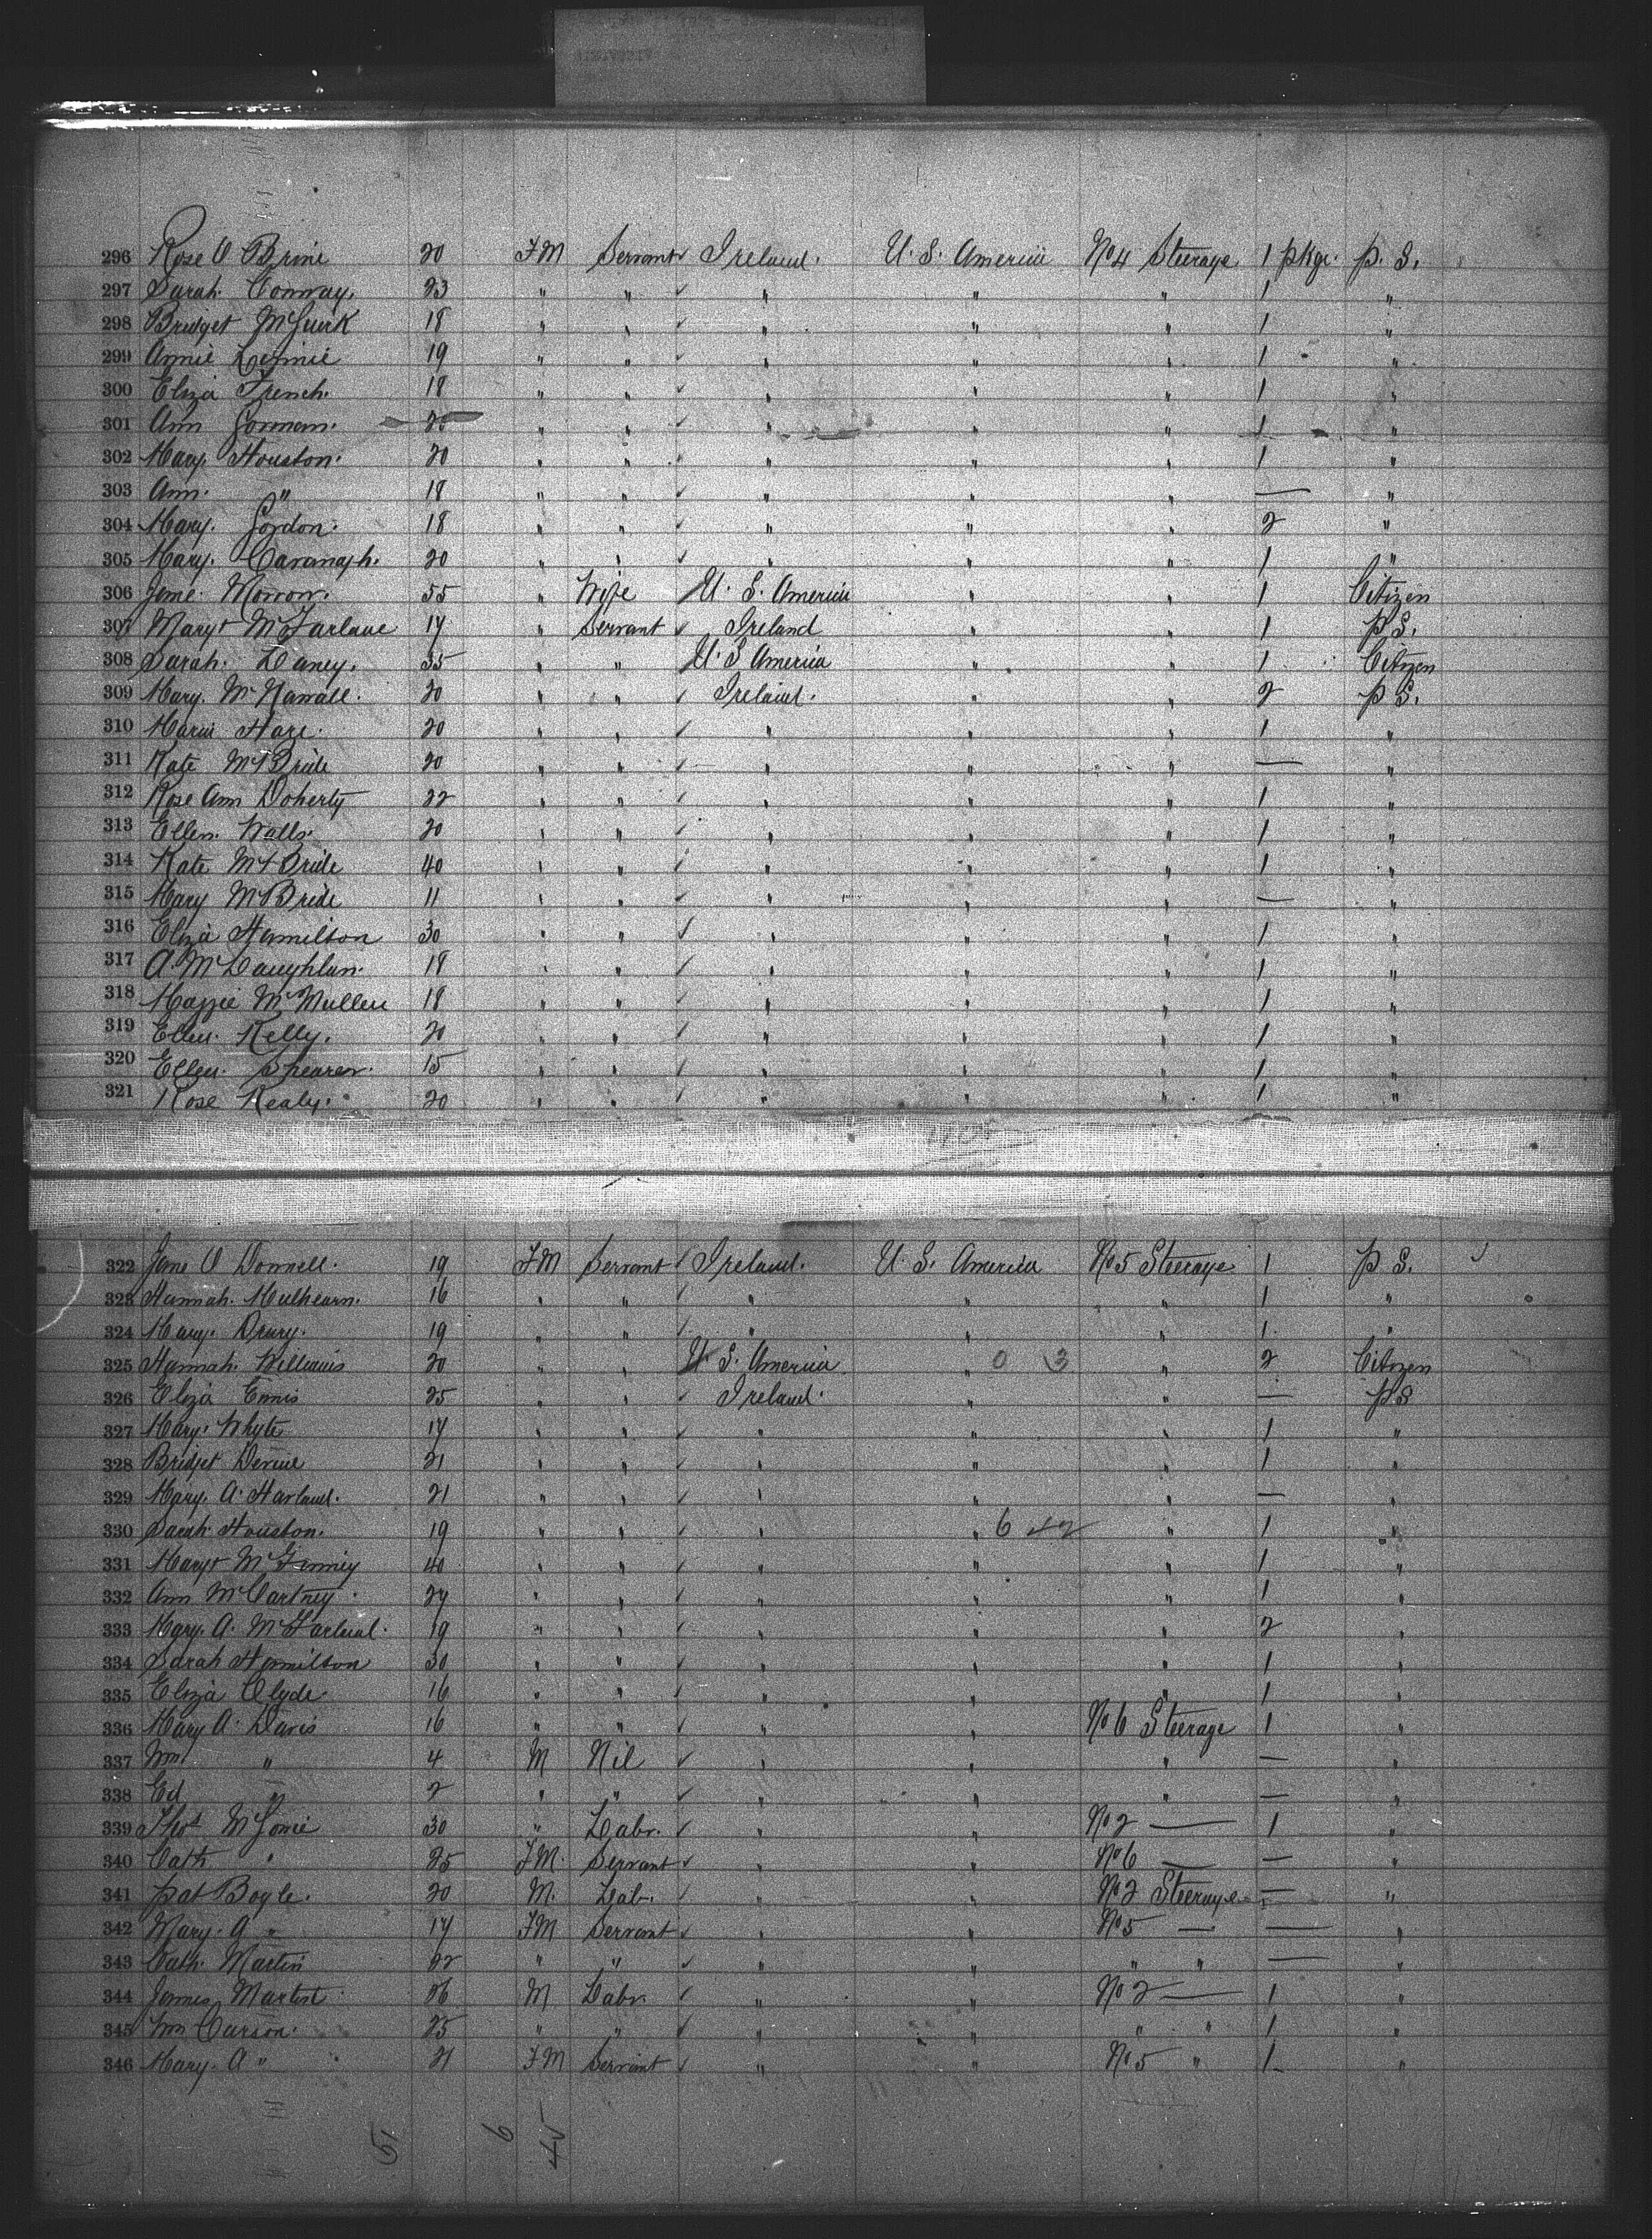 296 Rose O Brine 20 FM Servant Ireland. U. S. America No 4 Steerage 1 pkge. P. S.
297 Sarah. Conway. 23 " " " " " 1 "
298 Bridget McGurk 18 " " " " " 1 "
299 Annie 19 " " " " " 1 "
300 Eliza French. 18 " " " " " 1 "
301 Ann Gorman. 20 " " " " " 1 "
302 Mary. Houston. 20 " " " " " 1 "
303 Ann. " 18 " " " " " — "
304 Mary. Gordon. 18 " " " " " 2 "
305 Mary. Cavanagh. 20 " " " " " 1 "
306 Jane. Morrow. 55 " Wife U. S. America " " 1 Citizen
307 Margt McFarlane 17 " Servant Ireland " " 1 P.S.
308 Sarah. Laney. 35 " " U. S America " " 1 Citizen
309 Mary. 20 " " Ireland. " " 2 P S.
310 Maria Hare. 20 " " " " " 1 "
311 Kate McBride 20 " " " " " — "
312 Rose Ann Doherty 22 " " " " " 1 "
313 Ellen. Walls. 20 " " " " " 1 "
314 Kate McBride 40 " " " " " 1 "
315 Mary McBride 11 " " " " " — "
316 Eliza Hamilton 30 " " " " " 1 "
317 A. McLaughlan. 18 " " " " " 1 "
318 Maggie McMullen 18 " " " " " 1 "
319 Ellen. Kelly. 20 " " " " " 1 "
320 Ellen. Shearer. 15 " " " " " 1 "
321 Rose Kealy. 20 " " " " " 1 "
322 Jane O Donnell. 19 FM Servant Ireland. U. S. America No 5 Steerage 1 P S.
323 Hannah. Mulhearn. 16 " " " " " 1 "
324 Mary. Drury. 19 " " " " " 1 "
325 Hannah. Williams 20 " " U. S. America " 0 3 " 2 Citizen
326 Eliza Ennis 25 " " Ireland. " " — P S
327 Mary. Whyte 17 " " " " " 1 "
328 Bridget Devine 21 " " " " " 1 "
329 Mary. A. Harland. 21 " " " " " — "
330 Sarah. Houston. 19 " " " " 6 42 " 1 "
331 Margt 40 " " " " " 1 "
332 Ann McCartney. 24 " " " " " 1 "
333 Mary. A. 19 " " " " " 2 "
334 Sarah Hamilton 30 " " " " " 1 "
335 Eliza Clyde. 16 " " " " " 1 "
336 Mary A. Davis 16 " " " " No 6 Steerage 1 "
337 Wm. " 4 M Nil " " " — "
338 Ed " 2 " " " " " — "
339 Thos 30 " Labr. " " No 2 — 1 "
340 Cath " 25 FM. Servant " " No 6 — — "
341 Pat Bogle. 20 M. Lab. " " No 2 Steerage — "
342 Mary. A " 17 FM Servant " " No 5 — — "
343 Cath. Martin 22 " " " " " " — "
344 James Martin 26 M Labr. " " No 2 — 1 "
345 Wm Carson. 25 " " " " " " 1 "
346 Mary. A " 21 FM Servant " " No 5 " 1 "